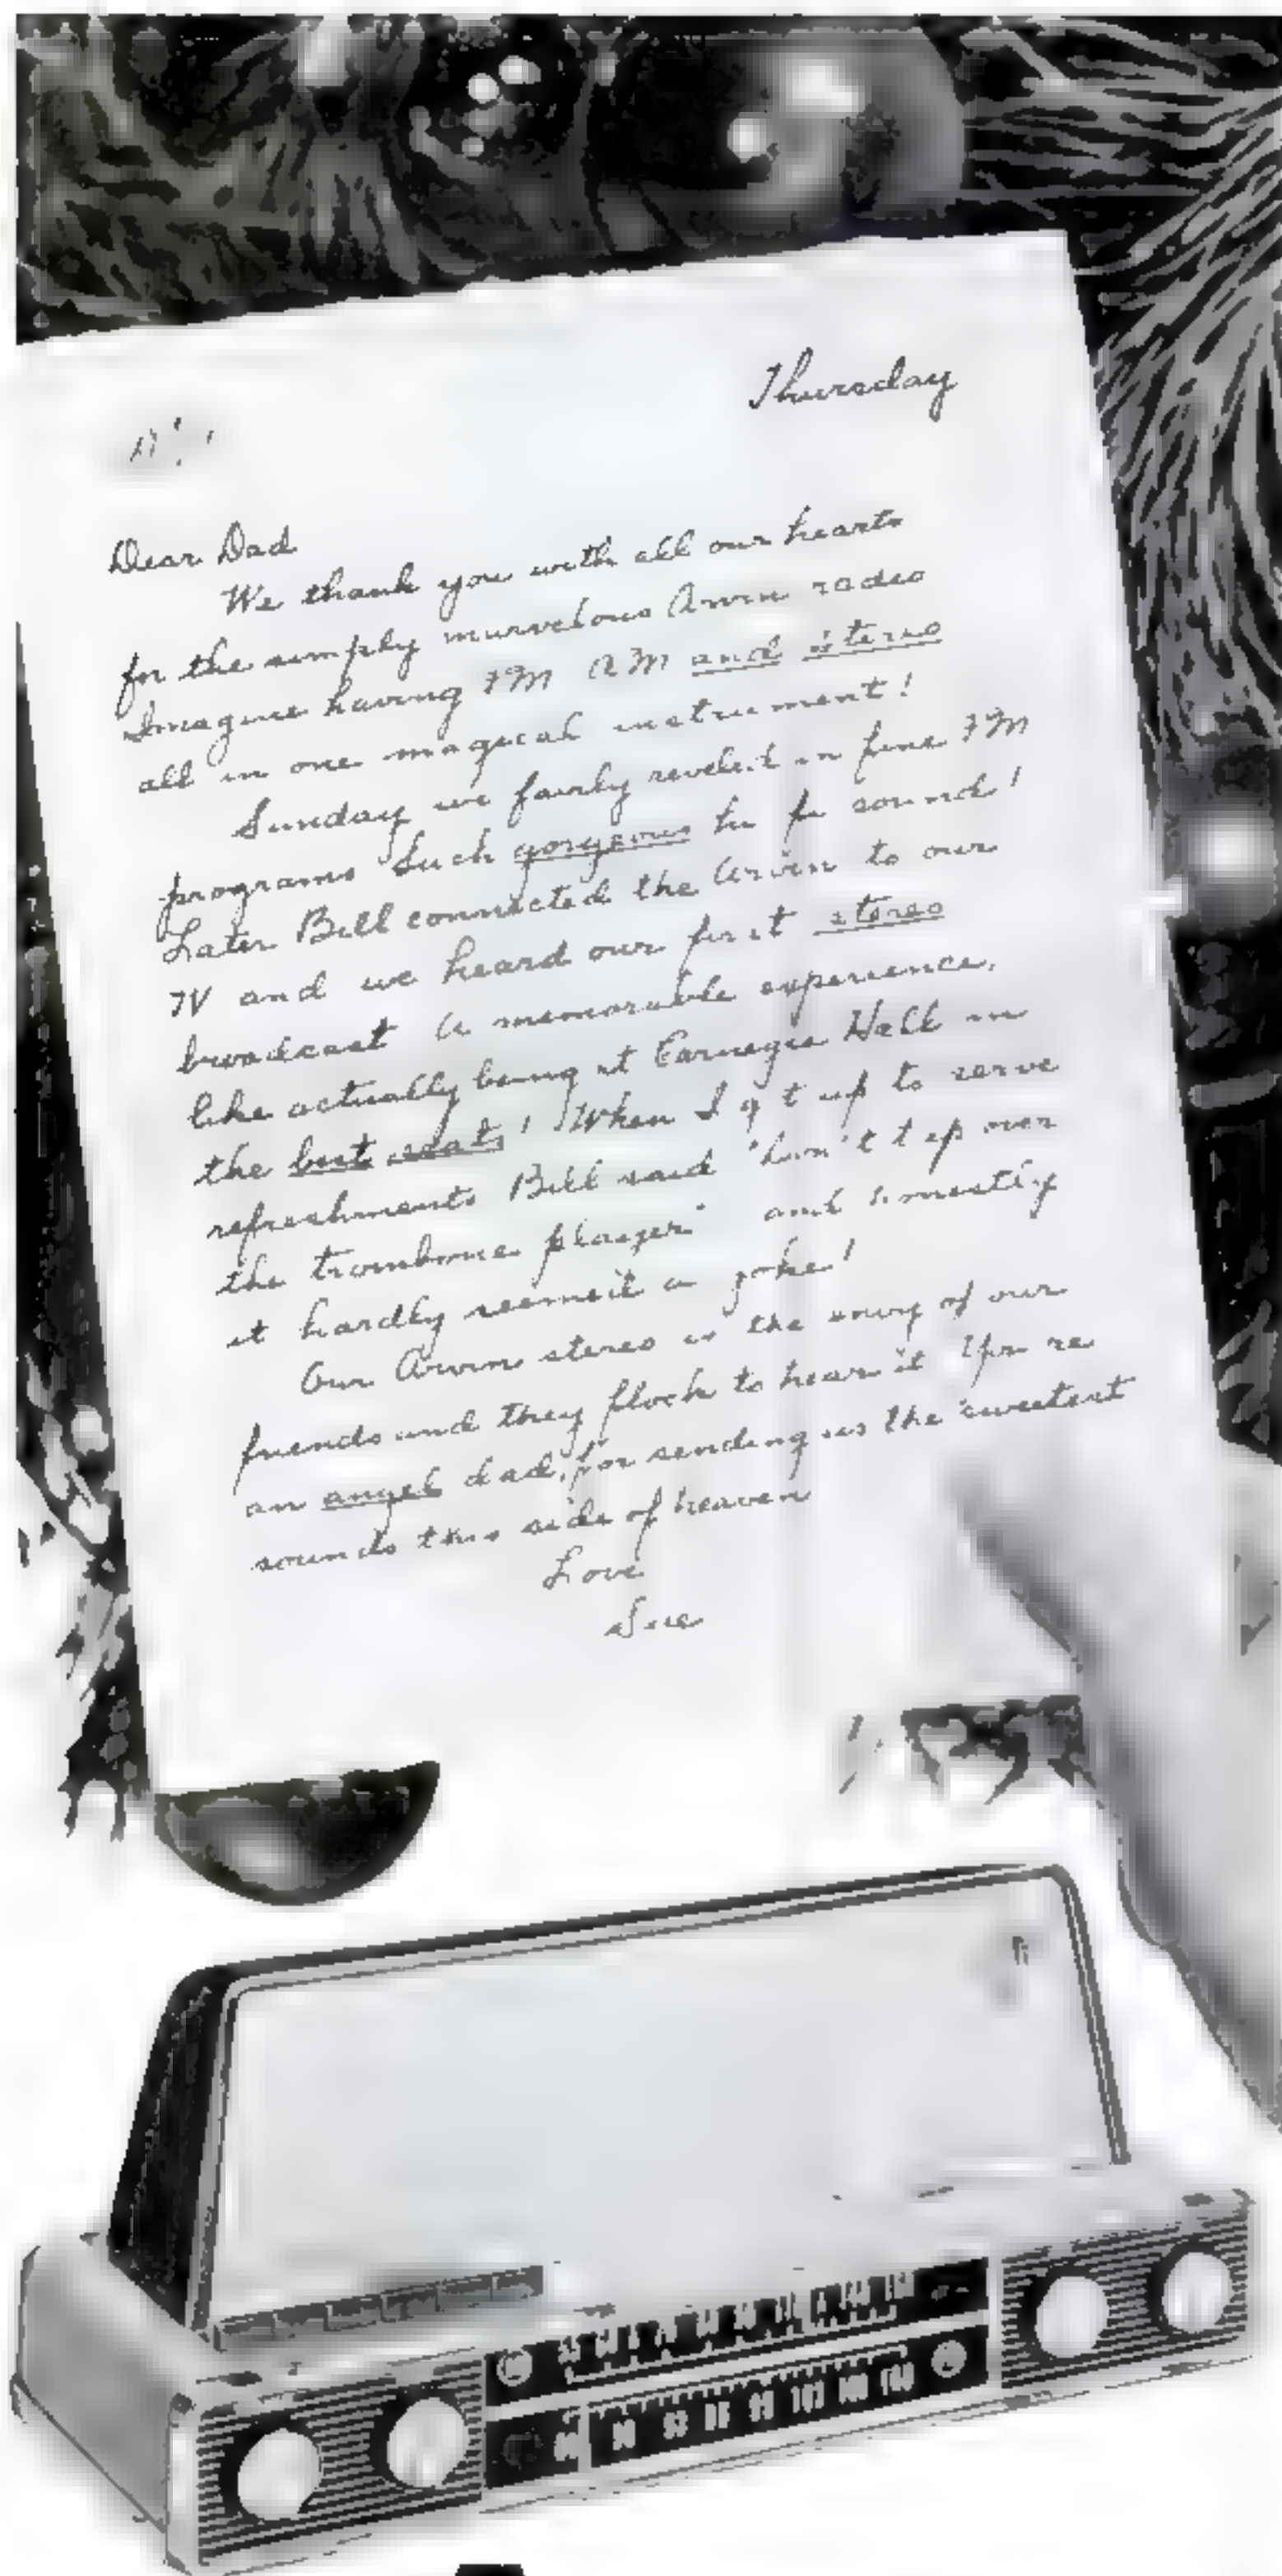 Thursday
Dear Dad
We thank you with all our hearts
for the simply marvelous Arvin radio
Imagine having FM AM and stereo
all in one magical instrument!
Sunday we fairly reveled in fine FM
programs Such gorgeous hi fi sound!
Later Bill connected the Arvin to our
TV and we heard our first stereo
broadcast A memorable experience,
like actually being at Carnegie Hall in
the best seats! When I got up to serve
refreshments Bill said "Don't trip over
the trombone player" and honestly
it hardly seemed a joke!
Our Arvin stereo is the envy of our
friends and they flock to hear it You re
an angel dad, for sending us the sweetest
sounds this side of heaven
Love
Sue